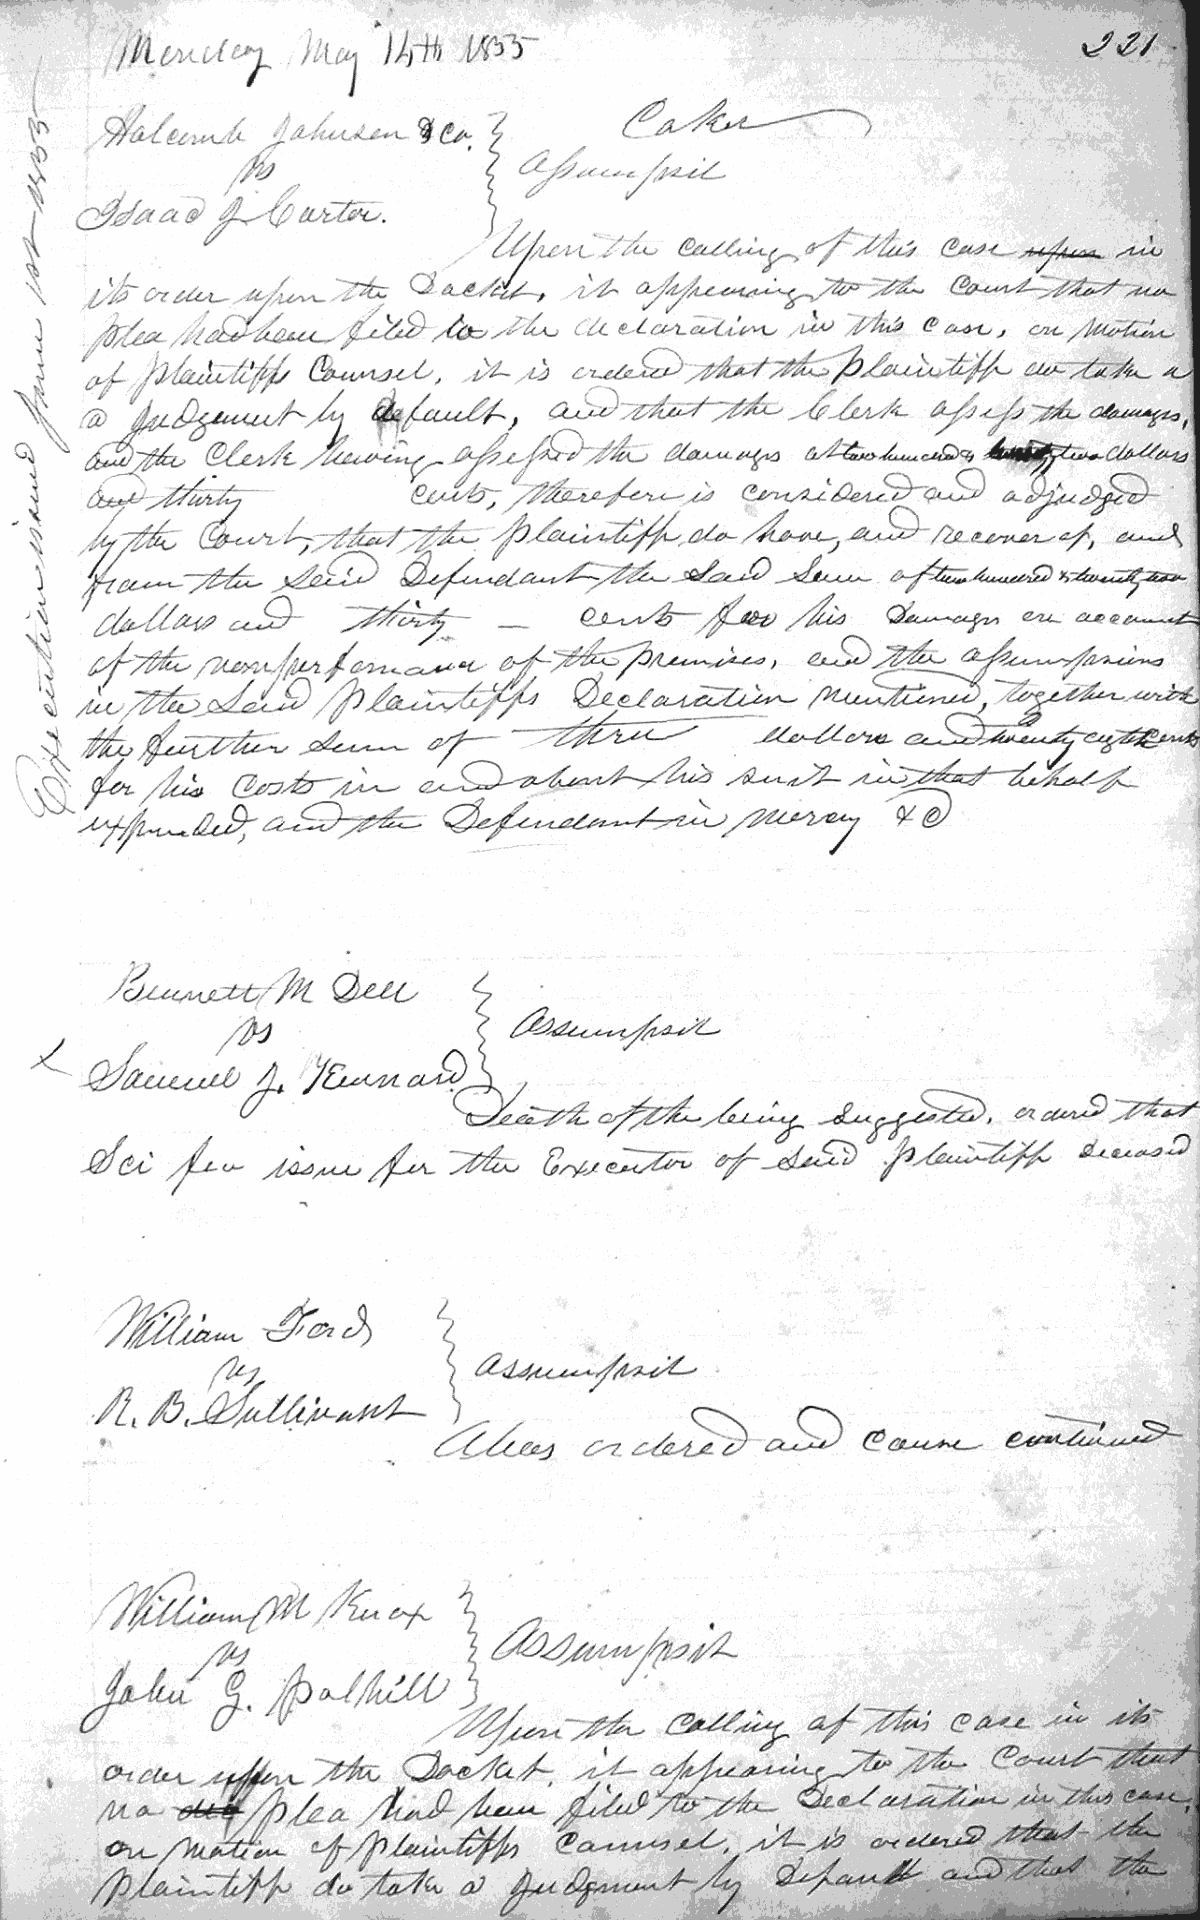 Monday May 14th 1855
221
Holcomb Johnson & Co.
vs
Isaac J. Carter.
Caker
Assumpsit
Upon the calling of this case upon in
its order upon the Docket, it appearing to the Court that no
plea had been filed to the declaration in this case, on motion
of Plaintiffs Counsel, it is ordered that the Plaintiff do take a
a judgement by default, and that the Clerk assess the damages,
and the Clerk having assessed the damages at two hundred & twenty two dollars
and thirty cents, therefore is considered and adjudged
by the Court, that the Plaintiff do have, and recover of, and
from the said Defendant the said sum of two hundred & twenty two
dollars and thirty — cents for his Damages on account
of the nonperformance of the premises, and the assumpsions
in the said Plaintiffs Declaration mentioned, together with
the further sum of three dollars and twenty eight cents
for his costs in and about his suit in that behalf
expended, and the Defendant in mercy &C
Execution issued June 1st 1855
Bennett M Dell
vs
Samuel J. Kennard
Assumpsit
X
Death of the being suggested, ordered that
Sci fea issue for the Executor of said Plaintiff deceased
William Ford
vs
R. B. Sullivant
Assumpsit
Alias ordered and cause continued
William M Knox
vs
John G. Polhill
Assumpsit
Upon the calling of this case in its
order upon the Docket, it appearing to the Court that
no plea had been filed to the Declaration in this case,
on motion of Plaintiffs Counsel, it is ordered that the
Plaintiff do take a judgment by Default and that the